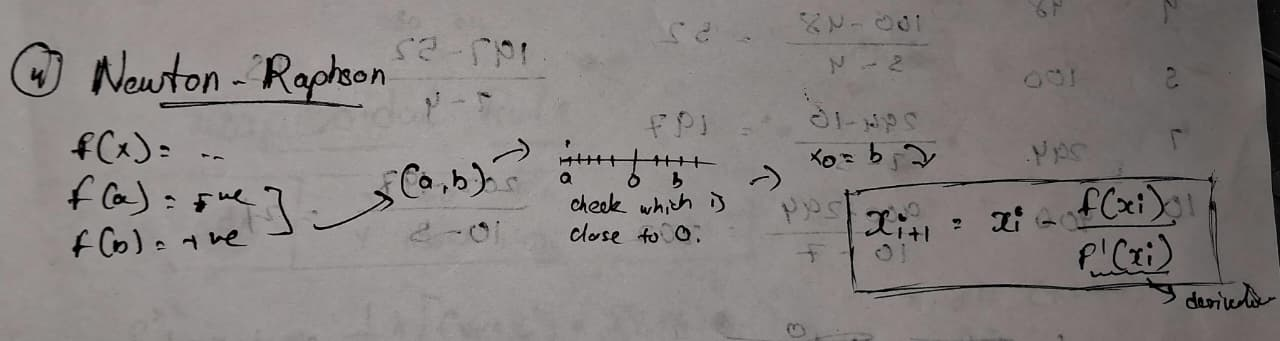 ④ Newton - Raphson
f(x) = ..
f(a) = -ve
f(b) = +ve
(a,b)
a 0 b
check which is
close to 0.
x0 = b
xi+1 = xi - f(xi) / f'(xi)
derivative